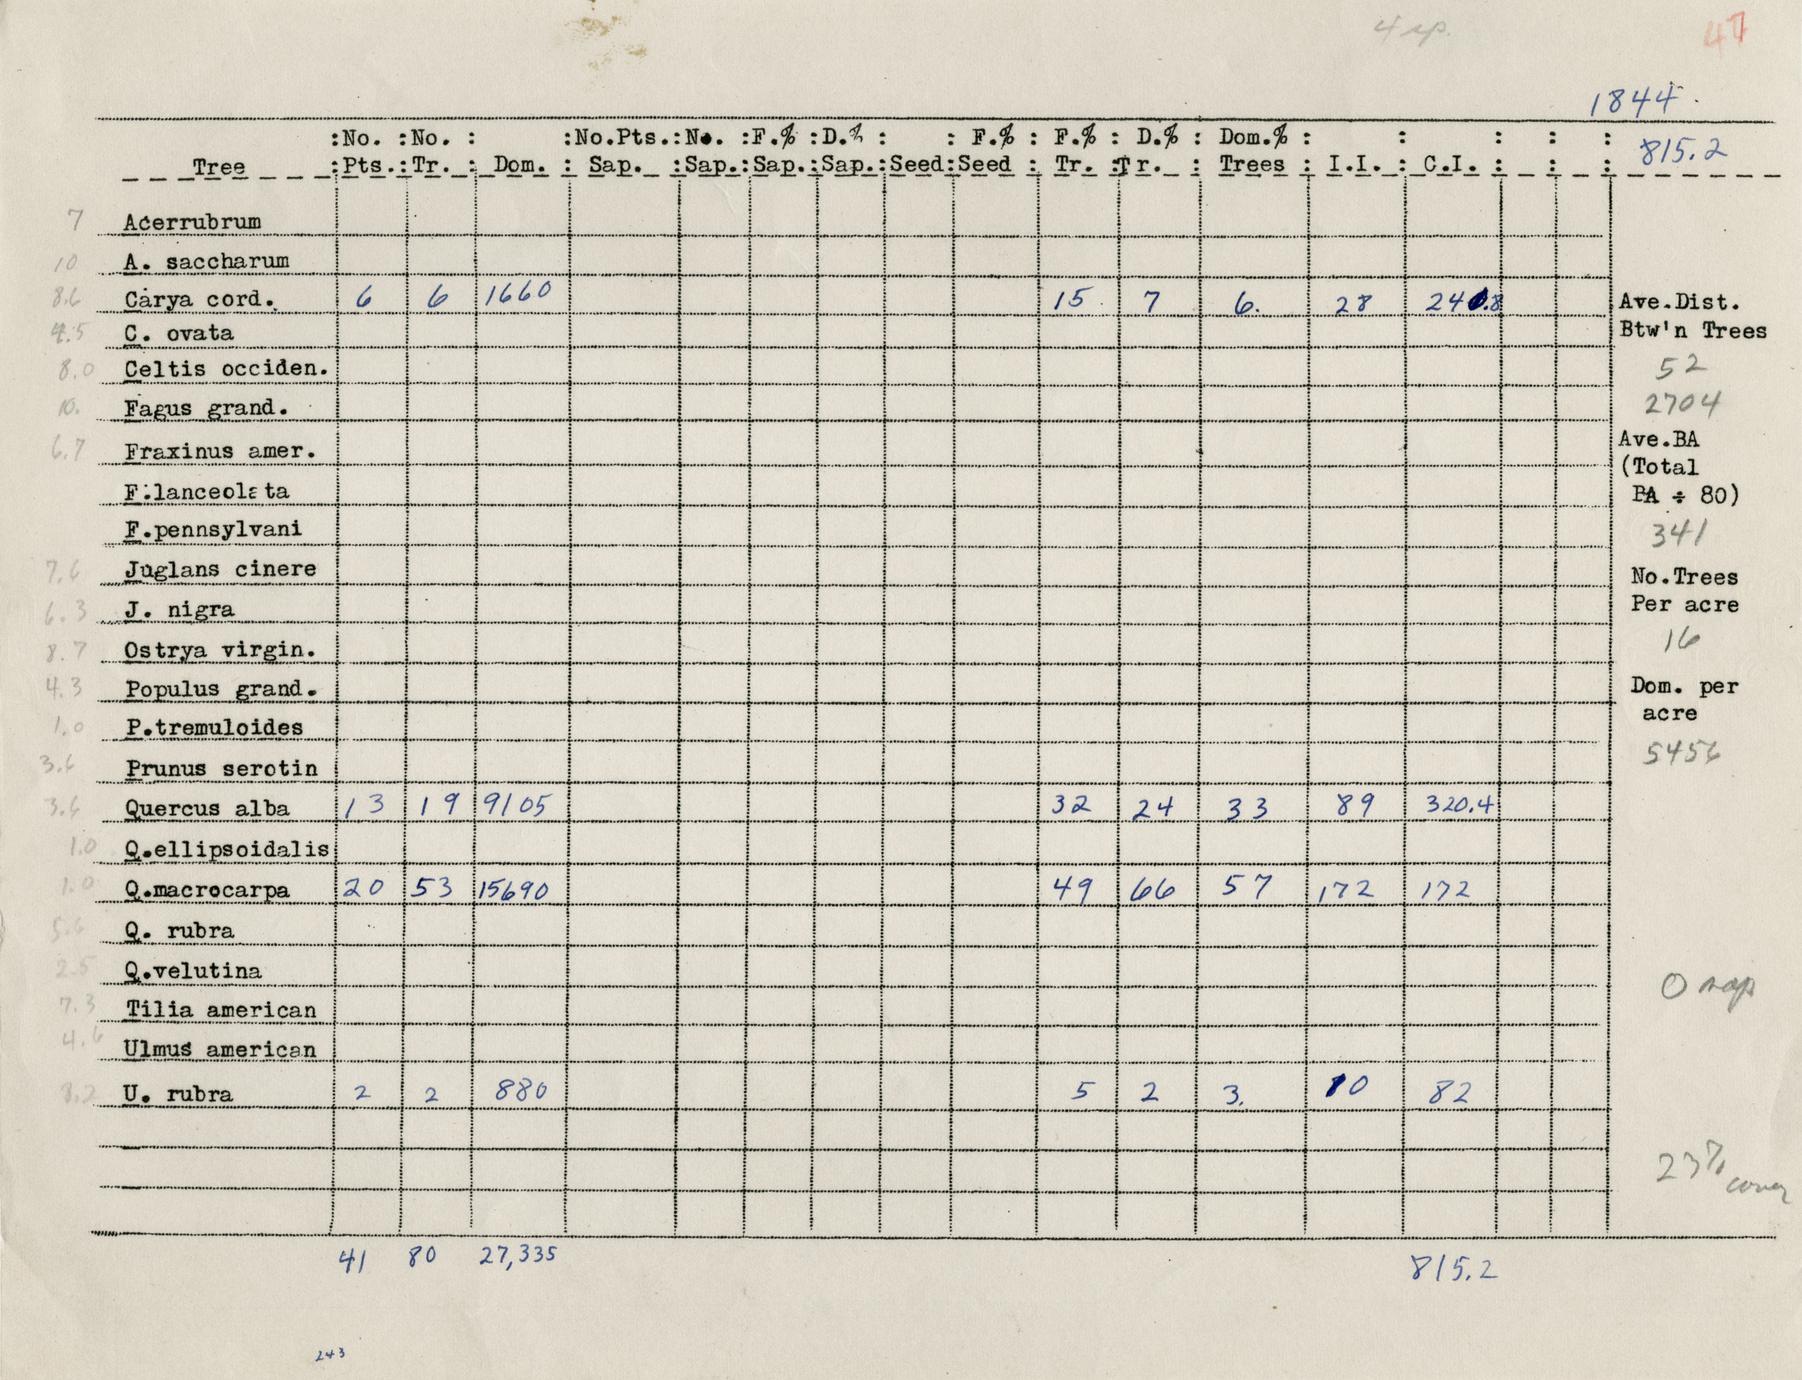 4 sp.
47
1844.
815.2
:No. :No. : :No.Pts.:No. :F.% :D.% : : F.% : F.% : D.% : Dom.% : : : : :
Tree :Pts.:Tr. : Dom. : Sap. :Sap.:Sap.:Sap.:Seed:Seed : Tr. :Tr. : Trees : I.I. : C.I. : : :
7 Acerrubrum
10 A. saccharum
8.6 Carya cord. 6 6 1660 15 7 6. 28 240.8
4.5 C. ovata
8.0 Celtis occiden.
10. Fagus grand.
6.7 Fraxinus amer.
F.lanceolata
F.pennsylvani
7.6 Juglans cinere
6.3 J. nigra
8.7 Ostrya virgin.
4.3 Populus grand.
1.0 P.tremuloides
3.6 Prunus serotin
3.6 Quercus alba 13 19 9105 32 24 33 89 320.4
1.0 Q.ellipsoidalis
1.0 Q.macrocarpa 20 53 15690 49 66 57 172 172
5.6 Q. rubra
2.5 Q.velutina
7.3 Tilia american
4.6 Ulmus american
8.2 U. rubra 2 2 880 5 2 3. 10 82
41 80 27,335 815.2
Ave.Dist.
Btw'n Trees
52
2704
Ave.BA
(Total
BA ÷ 80)
341
No.Trees
Per acre
16
Dom. per
acre
5456
0 sap
23%
cover
243